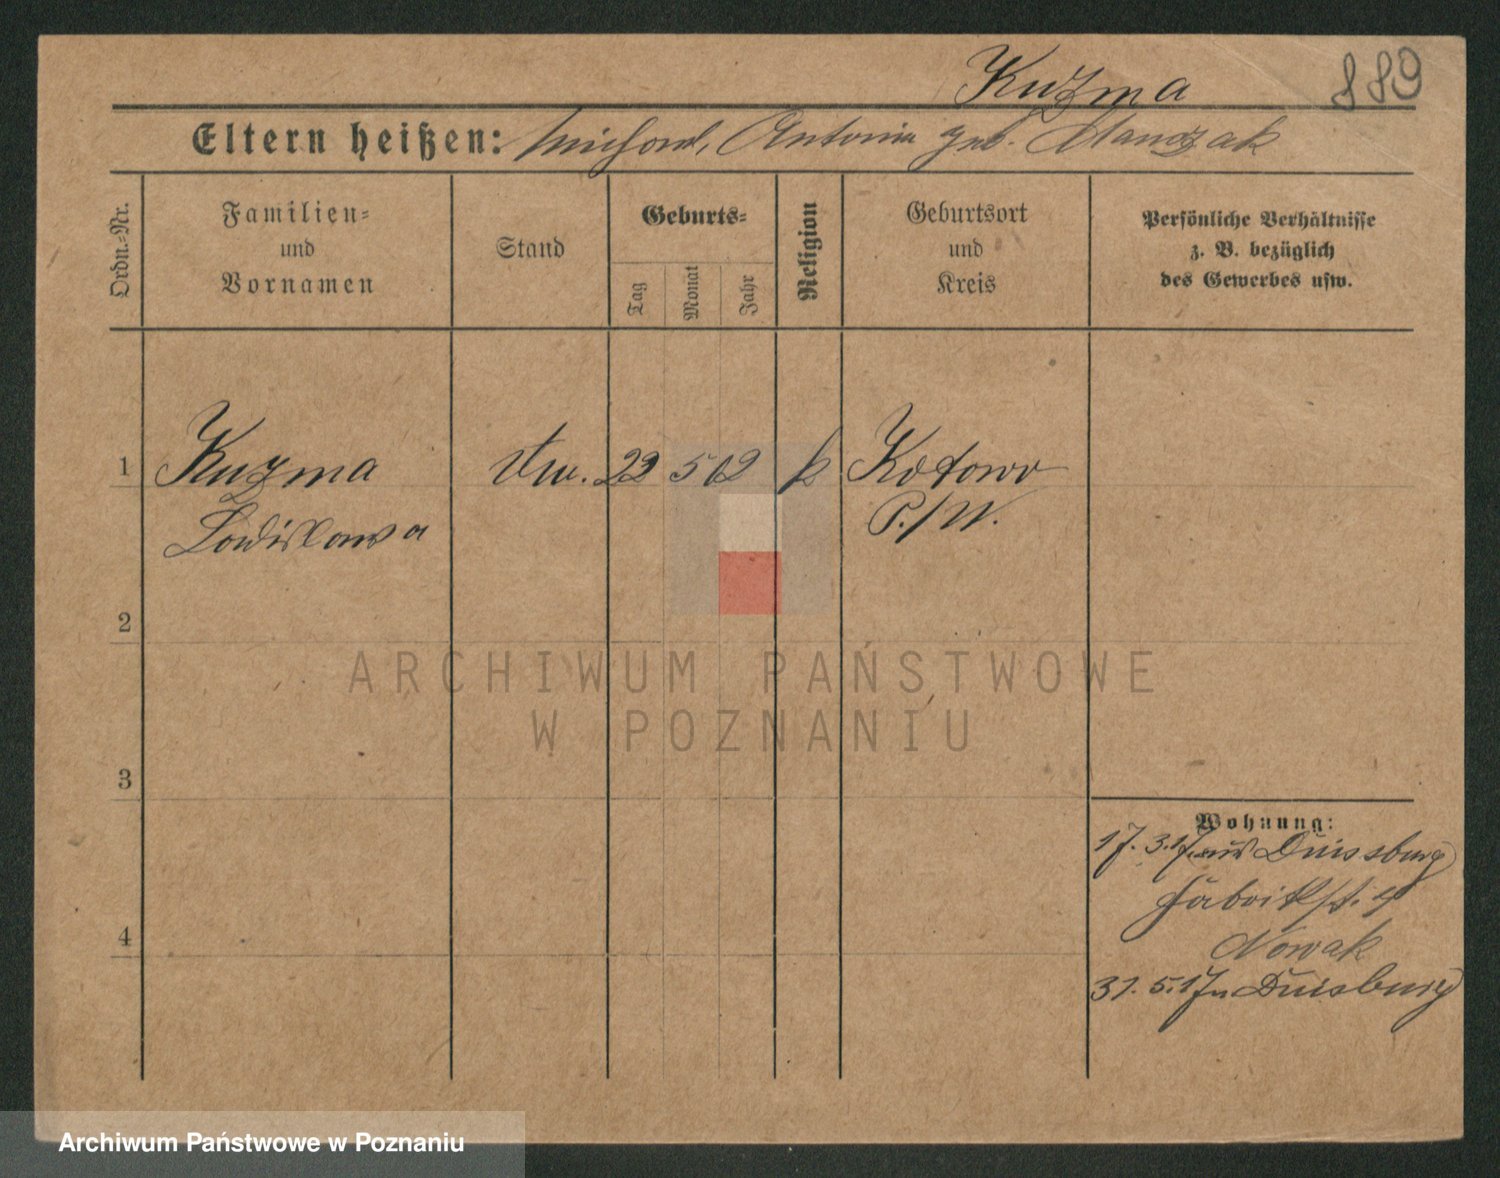 Kuzma 889
Eltern heißen: Michael, Antonia geb. Manczak
Ordn.-Nr.
Familien-
und
Vornamen
Stand
Geburts-
Tag
Monat
Jahr
Religion
Geburtsort
und
Kreis
Persönliche Verhältnisse
z. B. bezüglich
des Gewerbes usw.
1 Kuzma 22 5 02 k Kotowo
Ladislawa P./W.
2
3
4
ARCHIWUM PAŃSTWOWE
W POZNANIU
Wohnung:
17. 3. 17 aus Duissburg
Fabrikst. 4
Nowak
31. 5. 17 n Duisburg
Archiwum Państwowe w Poznaniu